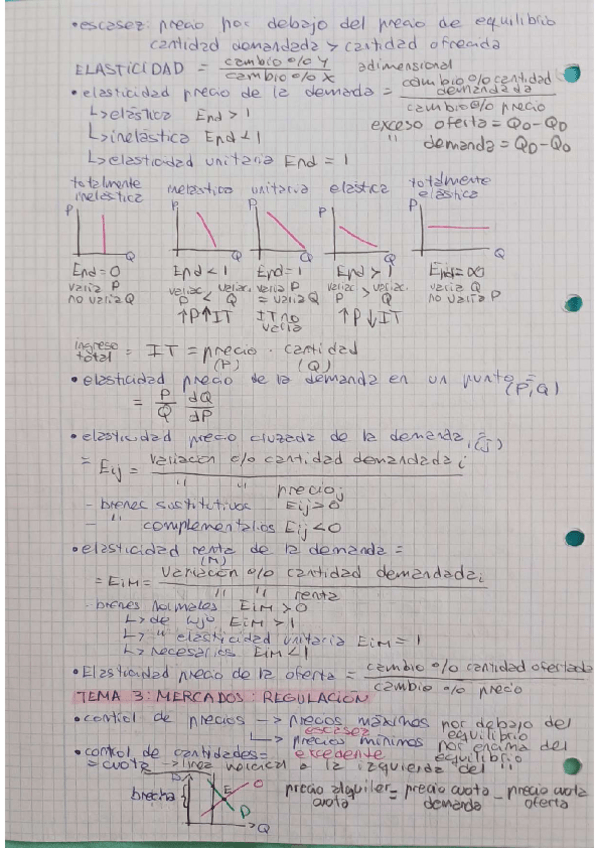 • escasez: precio por debajo del precio de equilibrio
cantidad demandada > cantidad ofrecida
ELASTICIDAD = cambio % Y / cambio % X adimensional
• elasticidad precio de la demanda = cambio % cantidad demandada / cambio % precio
↳ elástica End > 1
exceso oferta = Qo - QD
↳ inelástica End < 1
" demanda = QD - Qo
↳ elasticidad unitaria End = 1
totalmente inelástica inelástica unitaria elástica totalmente elástica
P P P P P
Q Q Q Q Q
End = 0 End < 1 End = 1 End > 1 End = ∞
varía P variac. P < variac. Q varía P = varía Q variac. P > variac. Q varía Q
no varía Q ↑P↑IT IT no varía ↑P↓IT no varía P
ingreso total = IT = precio · cantidad
(P) (Q)
• elasticidad precio de la demanda en un punto (P, Q) =
= P/Q dQ/dP
• elasticidad precio cruzada de la demanda (i, j) =
= Eij = variación % cantidad demandada i / " " precio j
- bienes sustitutivos Eij > 0
- " complementarios Eij < 0
• elasticidad renta de la demanda =
(M)
= EiM = variación % cantidad demandada i / " " renta
- bienes normales EiM > 0
↳ de lujo EiM > 1
↳ " elasticidad unitaria EiM = 1
↳ necesarios EiM < 1
• Elasticidad precio de la oferta = cambio % cantidad ofertada / cambio % precio
TEMA 3: MERCADOS: REGULACIÓN
• control de precios → precios máximos por debajo del equilibrio
escasez
↳ precios mínimos por encima del equilibrio
excedente
• control de cantidades =
= cuota → línea vertical a la izquierda del "
brecha { E O D Q
precio alquiler cuota = precio cuota demanda - precio cuota oferta